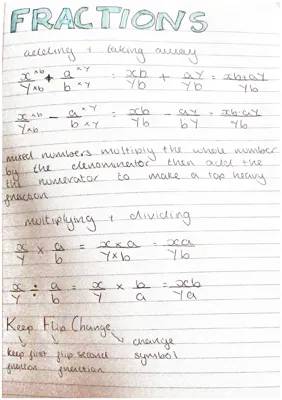 FRACTIONS
adding + taking away
x/y ×b/×b + a/b ×y/×y = xb/yb + ay/yb = xb+ay/yb
x/y ×b/×b - a/b ×y/×y = xb/yb - ay/by = xb-ay/yb
mixed numbers multiply the whole number
by the denominator then add the
the numerator to make a top heavy
fraction
multiplying + dividing
x/y × a/b = x×a/y×b = xa/yb
x/y ÷ a/b = x/y × b/a = xb/ya
Keep Flip Change
keep first flip second change
fraction fraction symbol